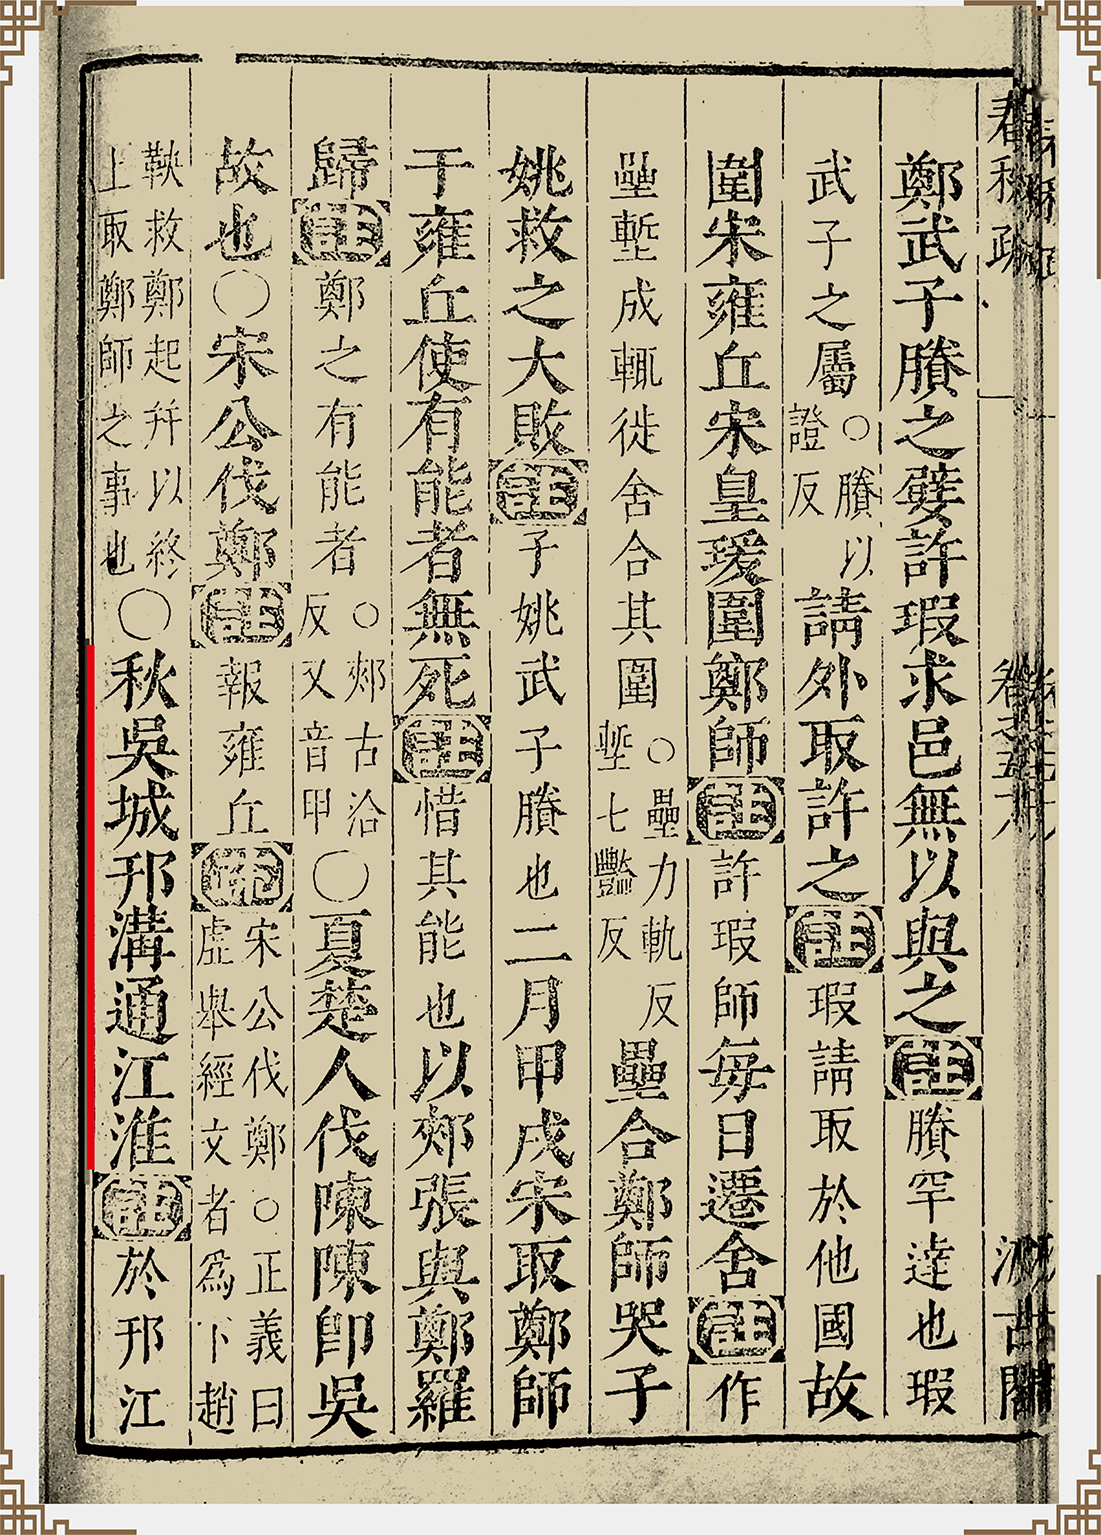 春秋疏
汲古閣
鄭武子賸之嬖許瑕求邑無以與之註賸罕達也瑕
武子之屬○賸以證反請外取許之註瑕請取於他國故
圍宋雍丘宋皇瑗圍鄭師註許瑕師每日遷舍註作
壘塹成輒徙舍合其圍○壘力軌反塹七豔反壘合鄭師哭子
姚救之大敗註子姚武子賸也二月甲戌宋取鄭師
于雍丘使有能者無死註惜其能也以郟張與鄭羅
歸註鄭之有能者○郟古洽反又音甲○夏楚人伐陳陳即吳
故也○宋公伐鄭註報雍丘疏宋公伐鄭○正義曰虛舉經文者爲下趙
鞅救鄭起幷以終上取鄭師之事也○秋吳城邗溝通江淮註於邗江